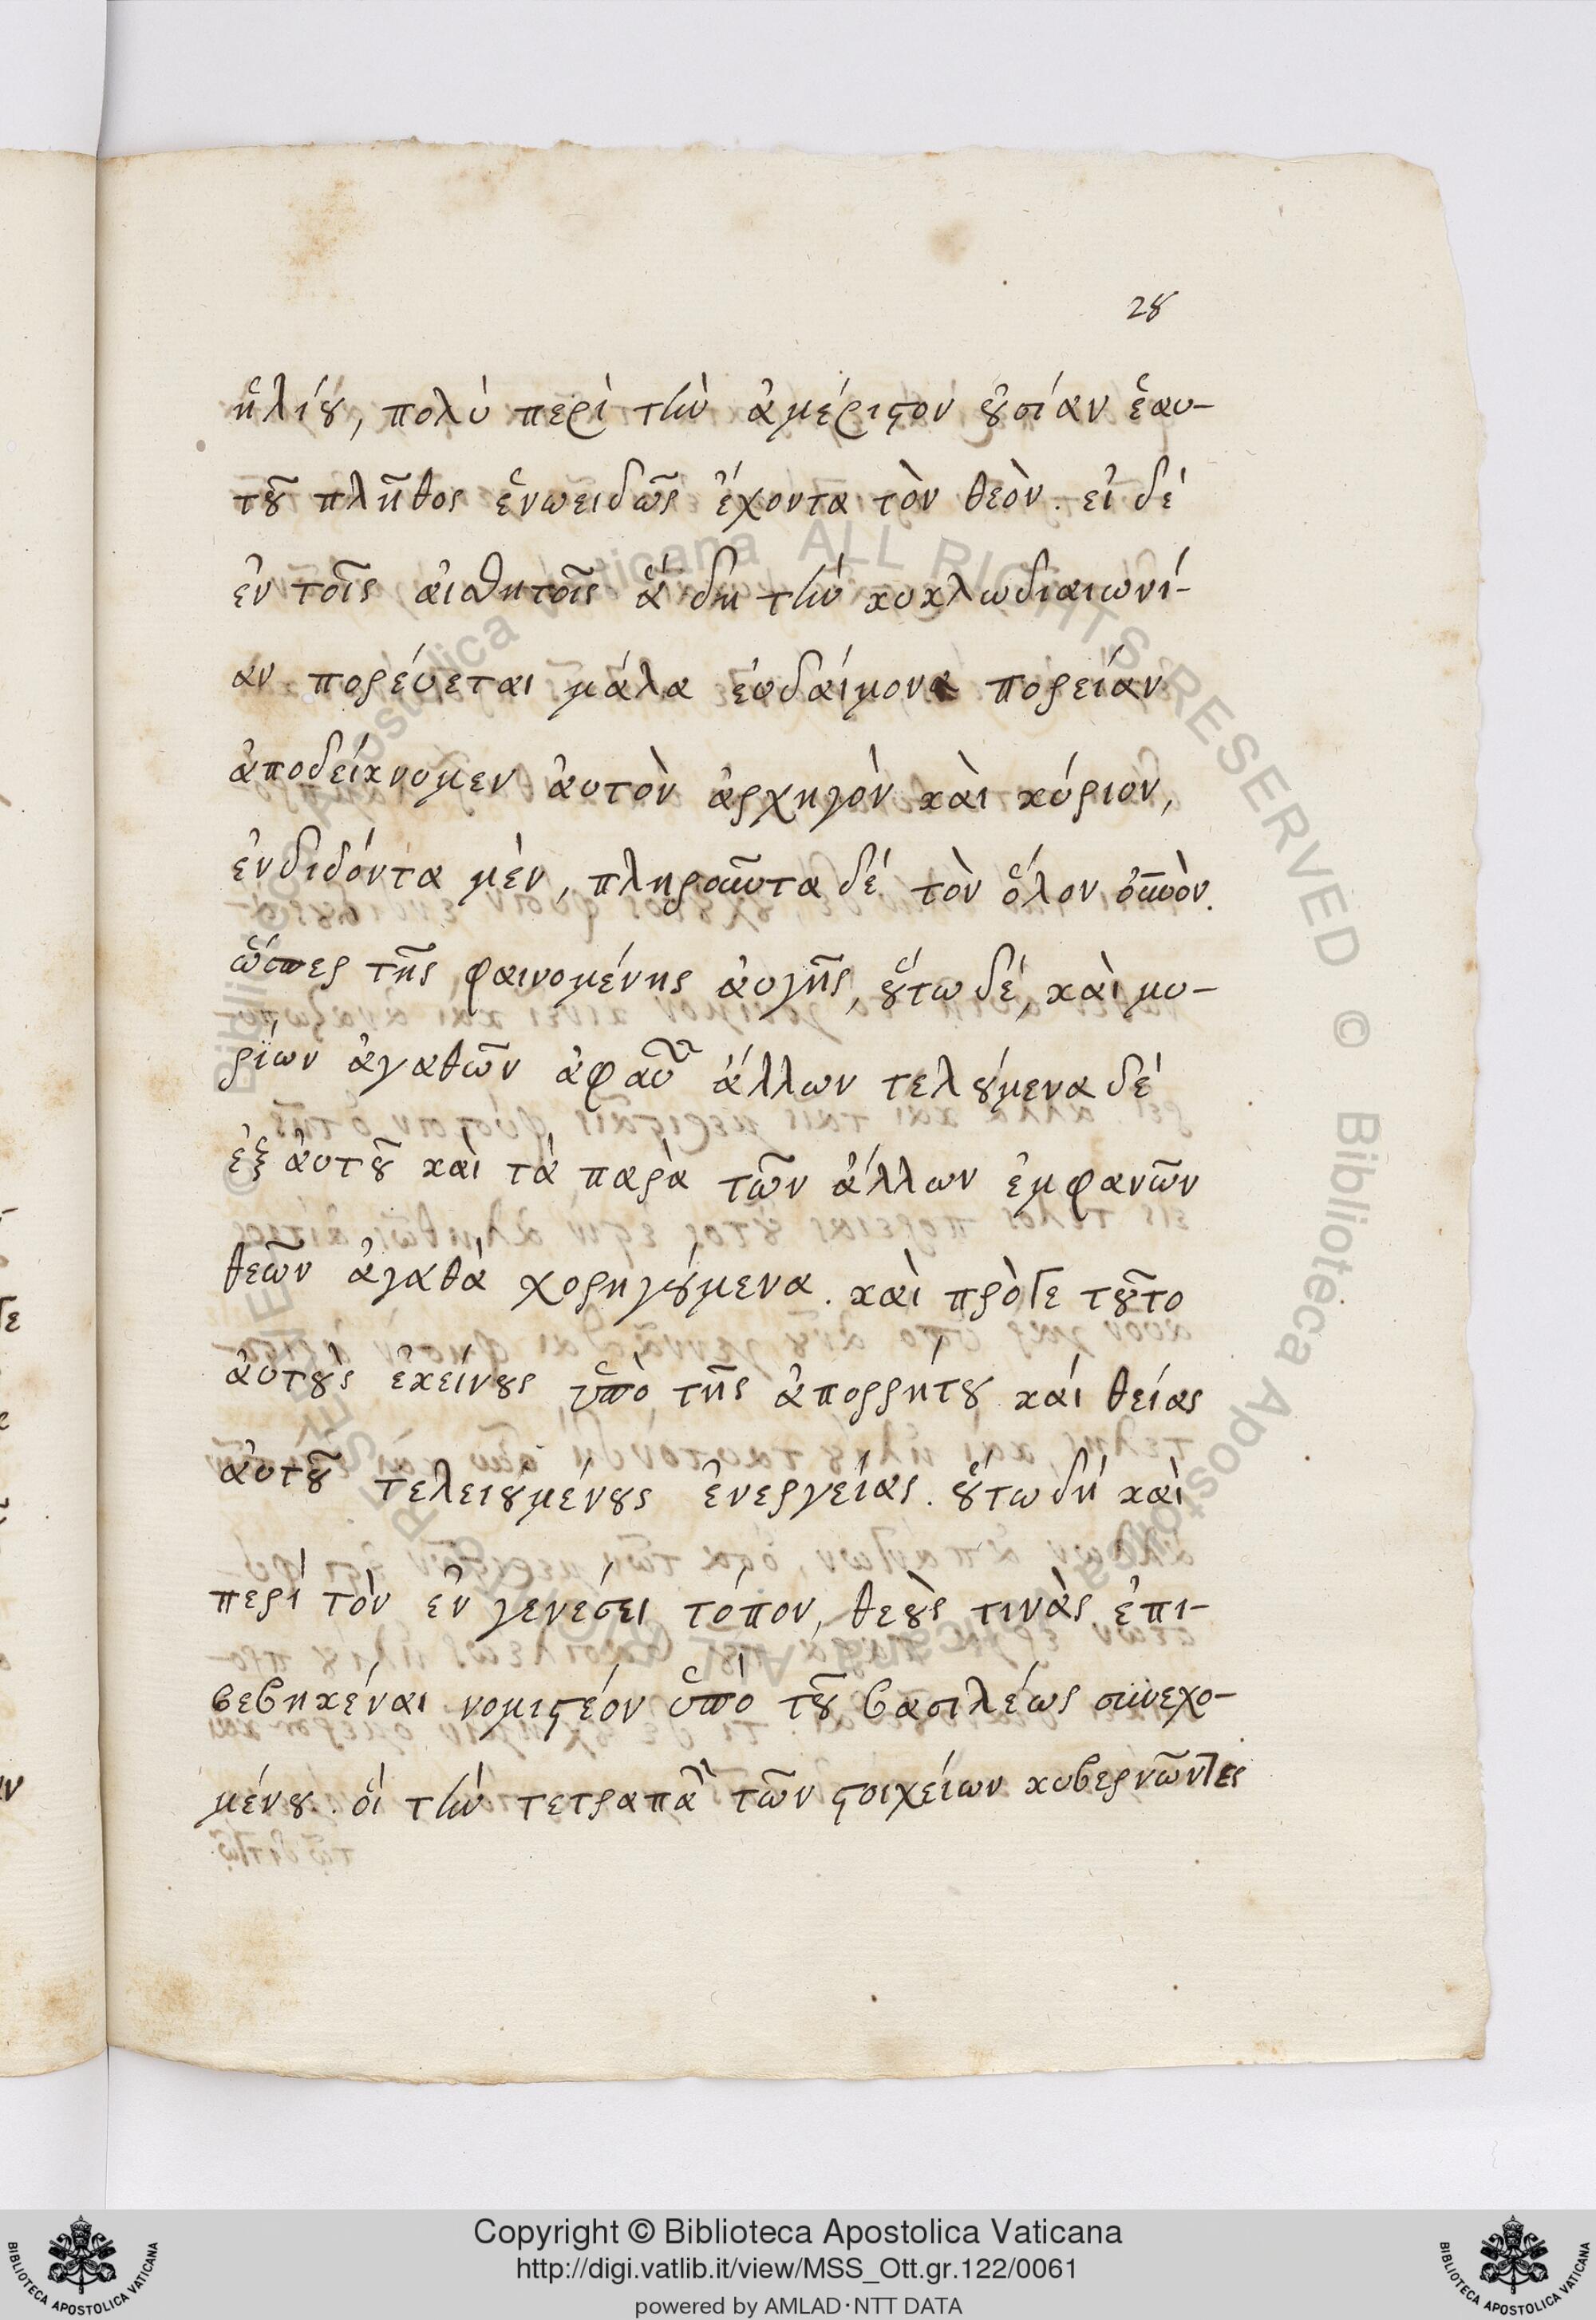 28
ἡλίου, πολὺ περὶ τὴν ἀμέριστον οὐσίαν ἑαυ-
τοῦ πλῆθος ἑνωειδῶς ἔχοντα τὸν θεόν. εἰ δὲ
ἐν τοῖς αἰσθητοῖς ἅ δη τὴν κυκλωδιαιωνί-
αν πορεύεται μάλα εὐδαίμονα πορείαν
ἀποδείκνυμεν αὐτὸν ἀρχηγὸν καὶ κύριον,
ἐνδιδόντα μὲν, πληροῦντα δὲ τὸν ὅλον
ὥσπερ τῆς φαινομένης αὐγῆς, οὕτω δέ, καὶ μυ-
ρίων ἀγαθῶν ἀφαν ἄλλων τελούμενα δὲ
ἐξ αὐτοῦ καὶ τὰ παρὰ τῶν ἄλλων ἐμφανῶν
θεῶν ἀγαθὰ χορηγούμενα. καὶ πρόγε τοῦτο
αὐτοὺς ἐκείνους ὑπὸ τῆς ἀπορρήτου καὶ θείας
αὐτοῦ τελειουμένους ἐνεργείας. οὕτω δὴ καὶ
περὶ τὸν ἐν γενέσει τόπον, θεοὺς τινὰς ἐπι-
βεβηκέναι νομιστέον ὑπὸ τοῦ βασιλέως συνεχο-
μένου. οἳ τὴν τετραπλ τῶν στοιχείων κυβερνῶντες
Copyright © Biblioteca Apostolica Vaticana
http://digi.vatlib.it/view/MSS_Ott.gr.122/0061
powered by AMLAD·NTT DATA
BIBLIOTECA APOSTOLICA VATICANA
BIBLIOTECA APOSTOLICA VATICANA